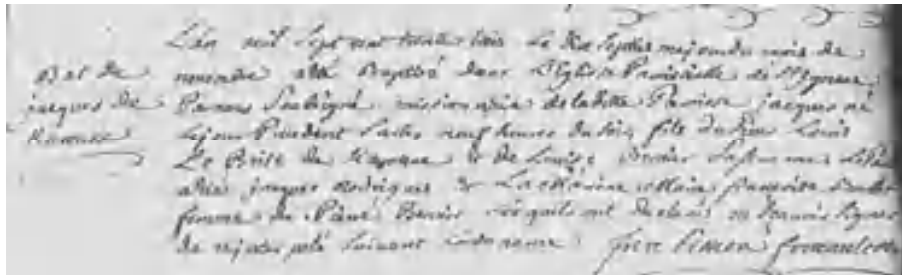 L'an mil sept cent trente trois Le dix septieme jour du mois de
Bat de
novembre a été Baptisé dans L'Eglise Paroissialle de St Ignace
jacques de
Par nous Soussigné missionnaire de laditte Paroisse jacques né
Kerouac
Le jour Precedent Sur les neuf heures du soir, fils du Sieur Louis
Le Brice de Karouac & de Louise Bernier Sa femme Le
a été jacques Rodrigue & La Maraine françoise
femme de Pierre Bernier Lesquels ont declaré ne Scavoir Signer
de ce interpelé Suivant L'ordonnance frere Simon foucault